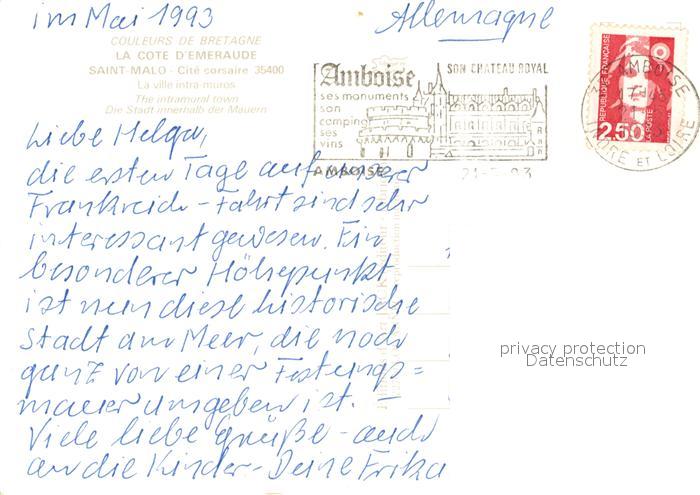 im Mai 1993
Allemagne
COULEURS DE BRETAGNE
LA COTE D'EMERAUDE
SAINT-MALO - Cité corsaire 35400
La ville intra-muros
The intramural town
Die Stadt innerhalb der Mauern
Amboise
ses monuments
son
camping
ses
vins
SON CHATEAU ROYAL
AMBOISE
REPUBLIQUE FRANÇAISE
2,50
LA POSTE
AMBOISE
INDRE ET LOIRE
Liebe Helga,
die ersten Tage auf unserer
Frankreich-Fahrt sind sehr
interessant gewesen. Ein
besonderer Höhepunkt
ist nun diese historische
Stadt am Meer, die noch
ganz von einer Festungs=
mauer umgeben ist. –
Viele liebe Grüße - auch
an die Kinder - Deine Erika
privacy protection
Datenschutz